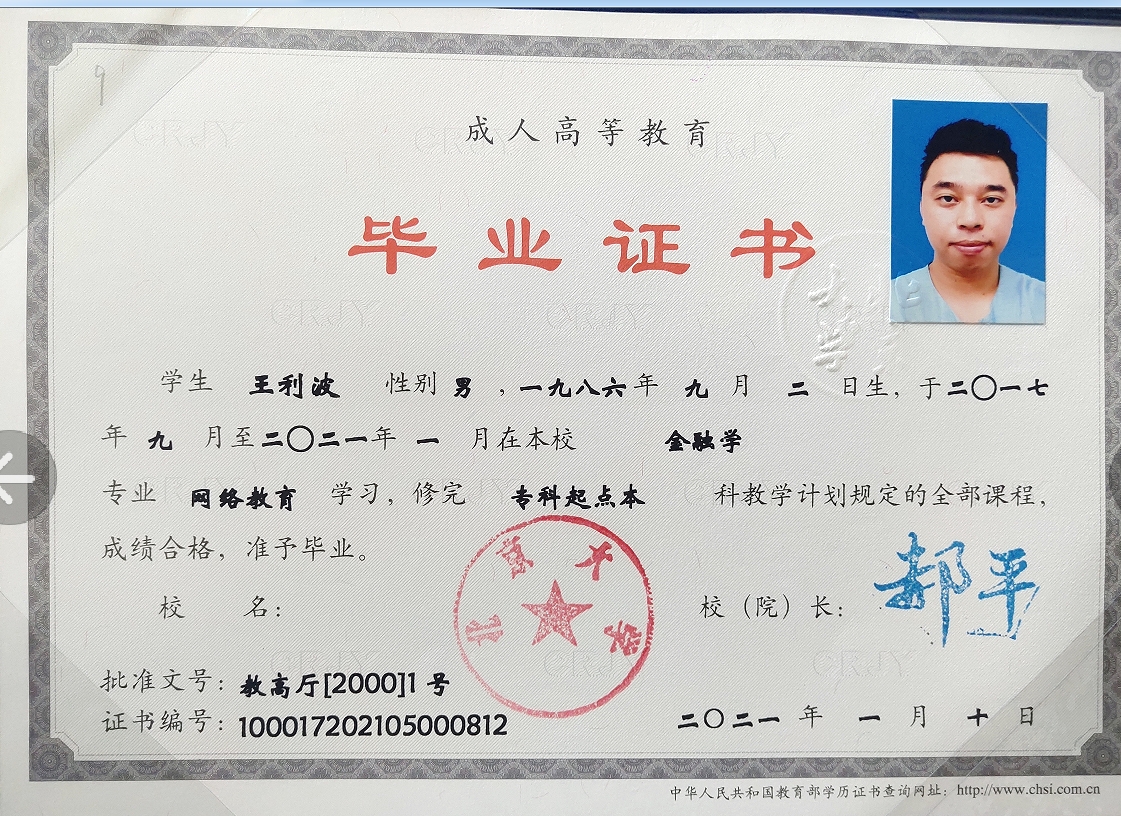 9
成人高等教育
毕业证书
学生 王利波 性别 男 ，一九八六年 九 月 二 日生，于二〇一七
年 九 月至二〇二一年 一 月在本校 金融学
专业 网络教育 学习，修完 专科起点本 科教学计划规定的全部课程，
成绩合格，准予毕业。
北京大学
校 名：
校（院）长：郝平
批准文号：教高厅[2000]1 号
证书编号：100017202105000812
二〇二一 年 一 月 十 日
中华人民共和国教育部学历证书查询网址：http://www.chsi.com.cn
CRJY
CRJY
CRJY
CRJY
CRJY
CRJY
CRJY
CRJY